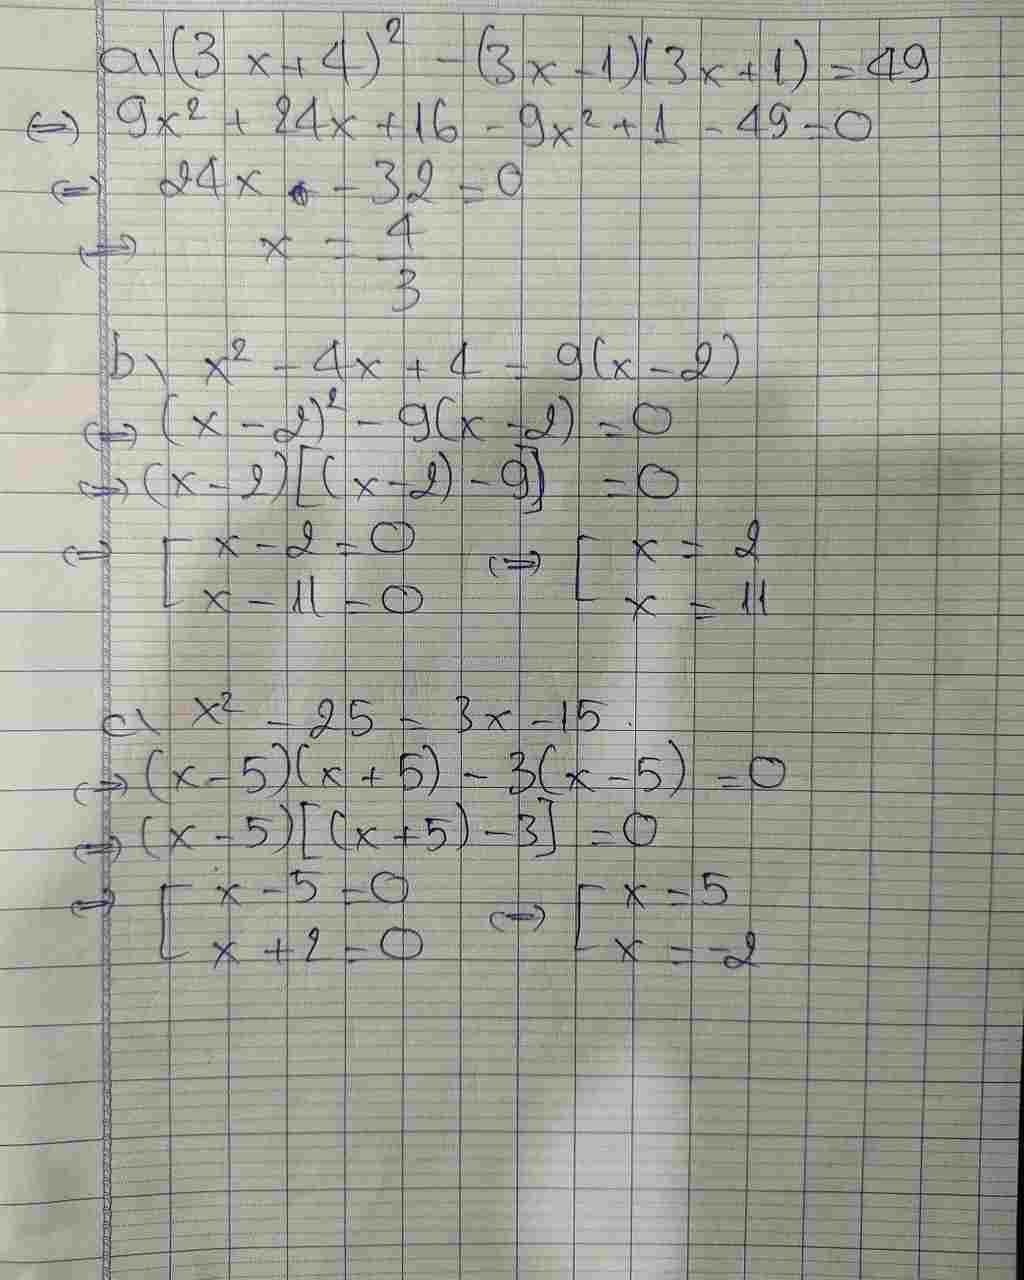 a) (3x+4)² - (3x-1)(3x+1) = 49
⇔ 9x² + 24x + 16 - 9x² + 1 - 49 = 0
⇔ 24x - 32 = 0
⇔ x = 4/3
b) x² - 4x + 4 = 9(x-2)
⇔ (x-2)² - 9(x-2) = 0
⇔ (x-2)[(x-2)-9] = 0
⇔ [ x-2=0 ⇔ [ x = 2
x-11=0 x = 11
c) x² - 25 = 3x - 15
⇔ (x-5)(x+5) - 3(x-5) = 0
⇔ (x-5)[(x+5)-3] = 0
⇔ [ x-5=0 ⇔ [ x = 5
x+2=0 x = -2